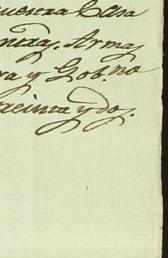 nuestra Casa
Armas
ra y Gob.no
treinta y dos